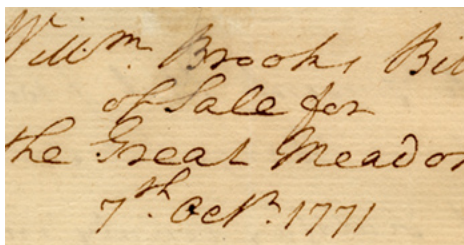 Willm. Brooks Bil
of Sale for
the Great Meadow
7th. Octr. 1771